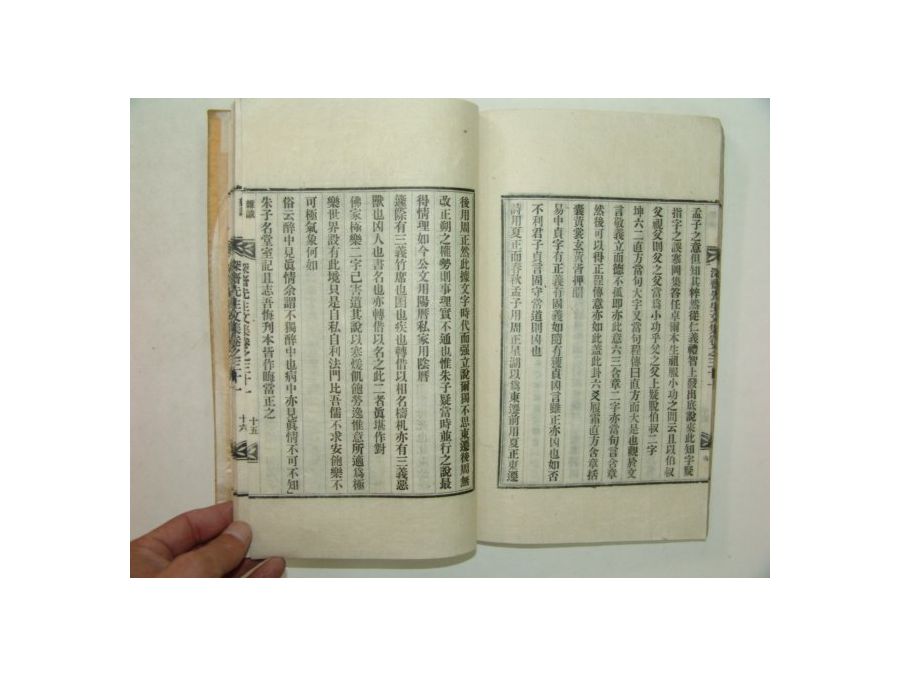 孟子之意但知其粹然從仁義禮智上發出底說來此知字疑
指字之誤寒岡集答任卓爾本生祖服小功之問云且以伯叔
父視父則父之父當為小功乎父之父上疑脫伯叔二字
坤六二直方當句大字又當句程傳曰直方而大是也觀於文
言敬義立而德不孤即亦此意六三含章二字亦當句言含章
然後可以得正程傳意亦如此蓋此卦六爻履霜直方含章括
囊黃裳玄黃皆押韻
易中貞字有正義有固義如隨有獲貞凶言雖正亦凶如否
不利君子貞言固守常道則凶也
詩用夏正而春秋孟子用周正星湖以為東遷前用夏正東遷
後用周正然此據文字時代而强立說爾獨不思東遷後周無
改正朔之權勢則事理實不通也惟朱子疑當時並行之說最
得情理如今公文用陽曆私家用陰曆
籧篨有三義竹席也囷也疾也轉借以相名檮杌亦有三義惡
獸也凶人也書名也亦轉借以名之此二者眞堪作對
佛家極樂二字已害道其說以寒煖飢飽勞逸惟意所適爲極
樂世界設有此境只是自私自利法門比吾儒不求安飽樂不
可極氣象何如
俗云醉中見眞情余謂不獨醉中也病中亦見眞情不可不知
朱子名堂室記且志吾悔列本皆作晦當正之
雜識
深齋先生文集卷之三十一
十五
十六